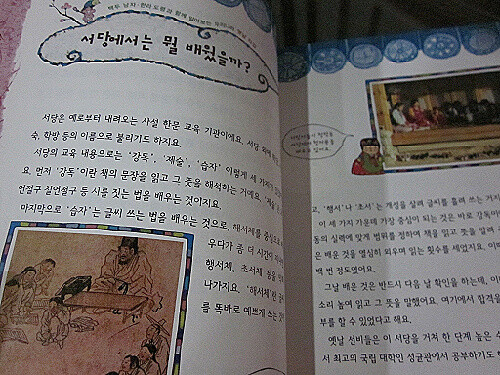 백두 낭자·한라 도령과 함께 알아보는
서당에서는 뭘 배웠을까?
서당은 예로부터 내려오는 사설 한문 교육 기관이에요. 서당 외에
숙, 학방 등의 이름으로 불리기도 하지요.
서당의 교육 내용으로는 '강독', '제술', '습자' 이렇게 세 가지가
요. 먼저 '강독'이란 책의 문장을 읽고 그 뜻을 해석하는 거예요. '제술'
언절구 칠언절구 등 시를 짓는 법을 배우는 것이지요.
마지막으로 '습자'는 글씨 쓰는 법을 배우는 것으로, 해서체를 중심으로
우다가 좀 더 시간이 지나
행서체, 초서체 등을 익
나가지요. '해서체'란 글
를 똑바로 예쁘게 쓰는 것
고, '행서'나 '초서'는 개성을 살려 글씨를 흘려 쓰는 거지
이 세 가지 가운데 가장 중심이 되는 것은 바로 강독이
동의 실력에 맞게 범위를 정하여 책을 읽고 뜻을 알려
은 배운 것을 열심히 외우며 읽는 횟수를 세었지요.
백 번 정도였어요.
그날 배운 것은 반드시 다음 날 확인을 하는데,
소리 높여 읽고 그 뜻을 말했어요. 여기에서 합격
부를 할 수 있었다고 해요.
옛날 선비들은 이 서당을 거쳐 한 단계 높은
서 최고의 국립 대학인 성균관에서 공부하기도